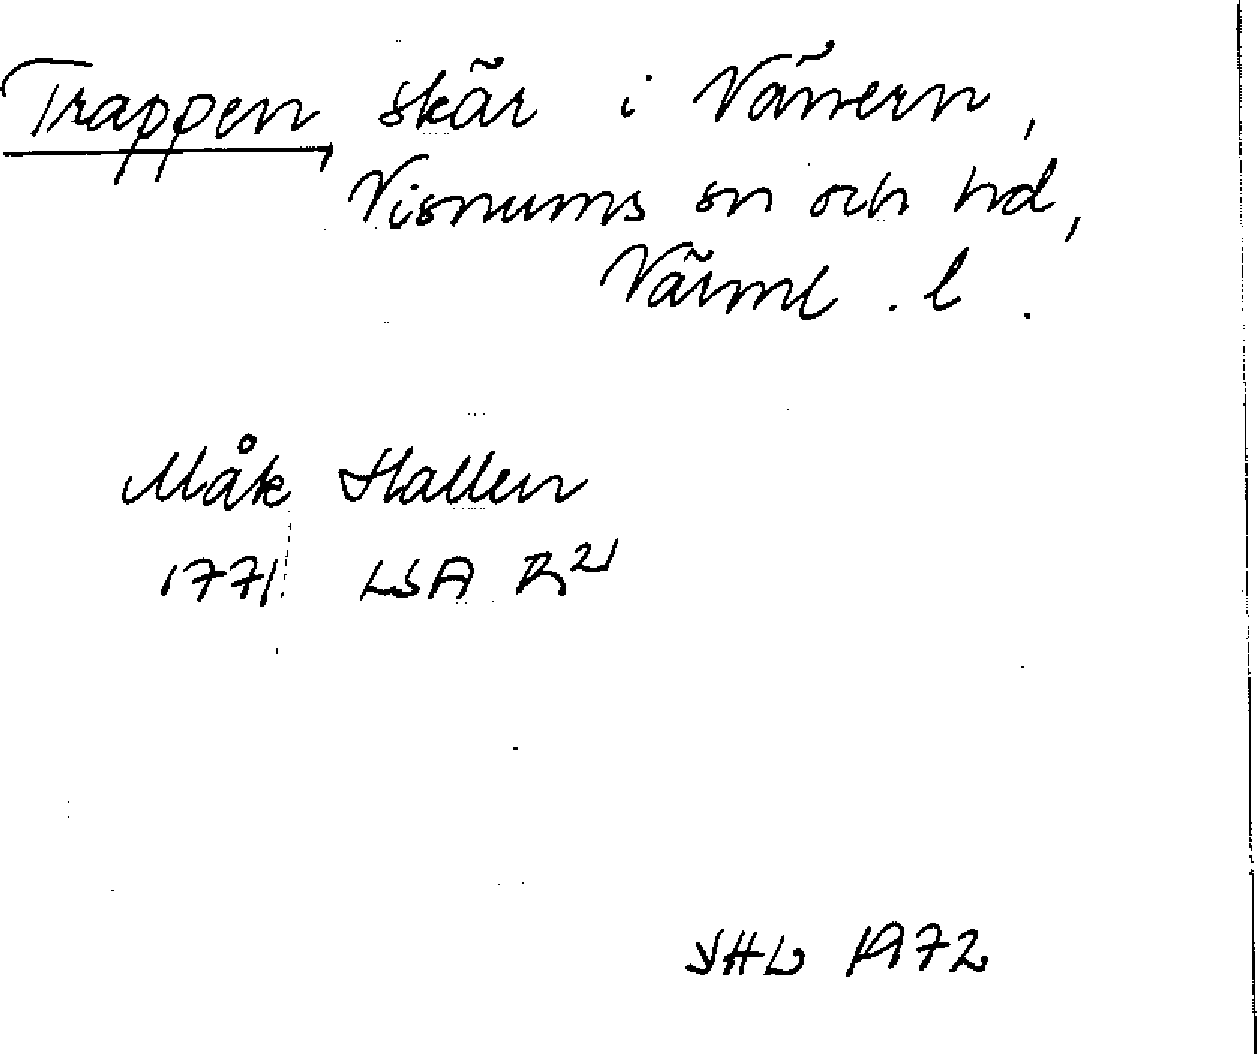 Trappen, skär i Vänern,
Visnums sn och hd,
Värml. l.
Måk Hallen
1771 LSA R21
YHL 1972